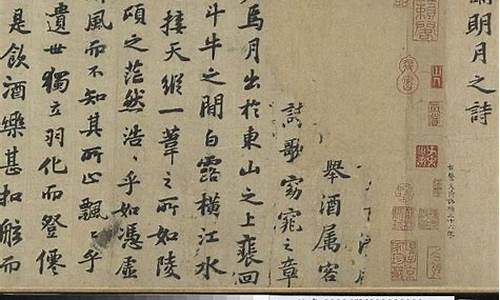 明月之詩
舉酒属客
詩歌窈窕之章
焉月出於東山之上裵回
斗牛之間白露橫江水
接天縱一葦之所如陵
頃之茫然浩〻乎如馮虛
風而不知其所止飄〻乎
遺世獨立羽化而登僊
是飲酒樂甚扣舷而